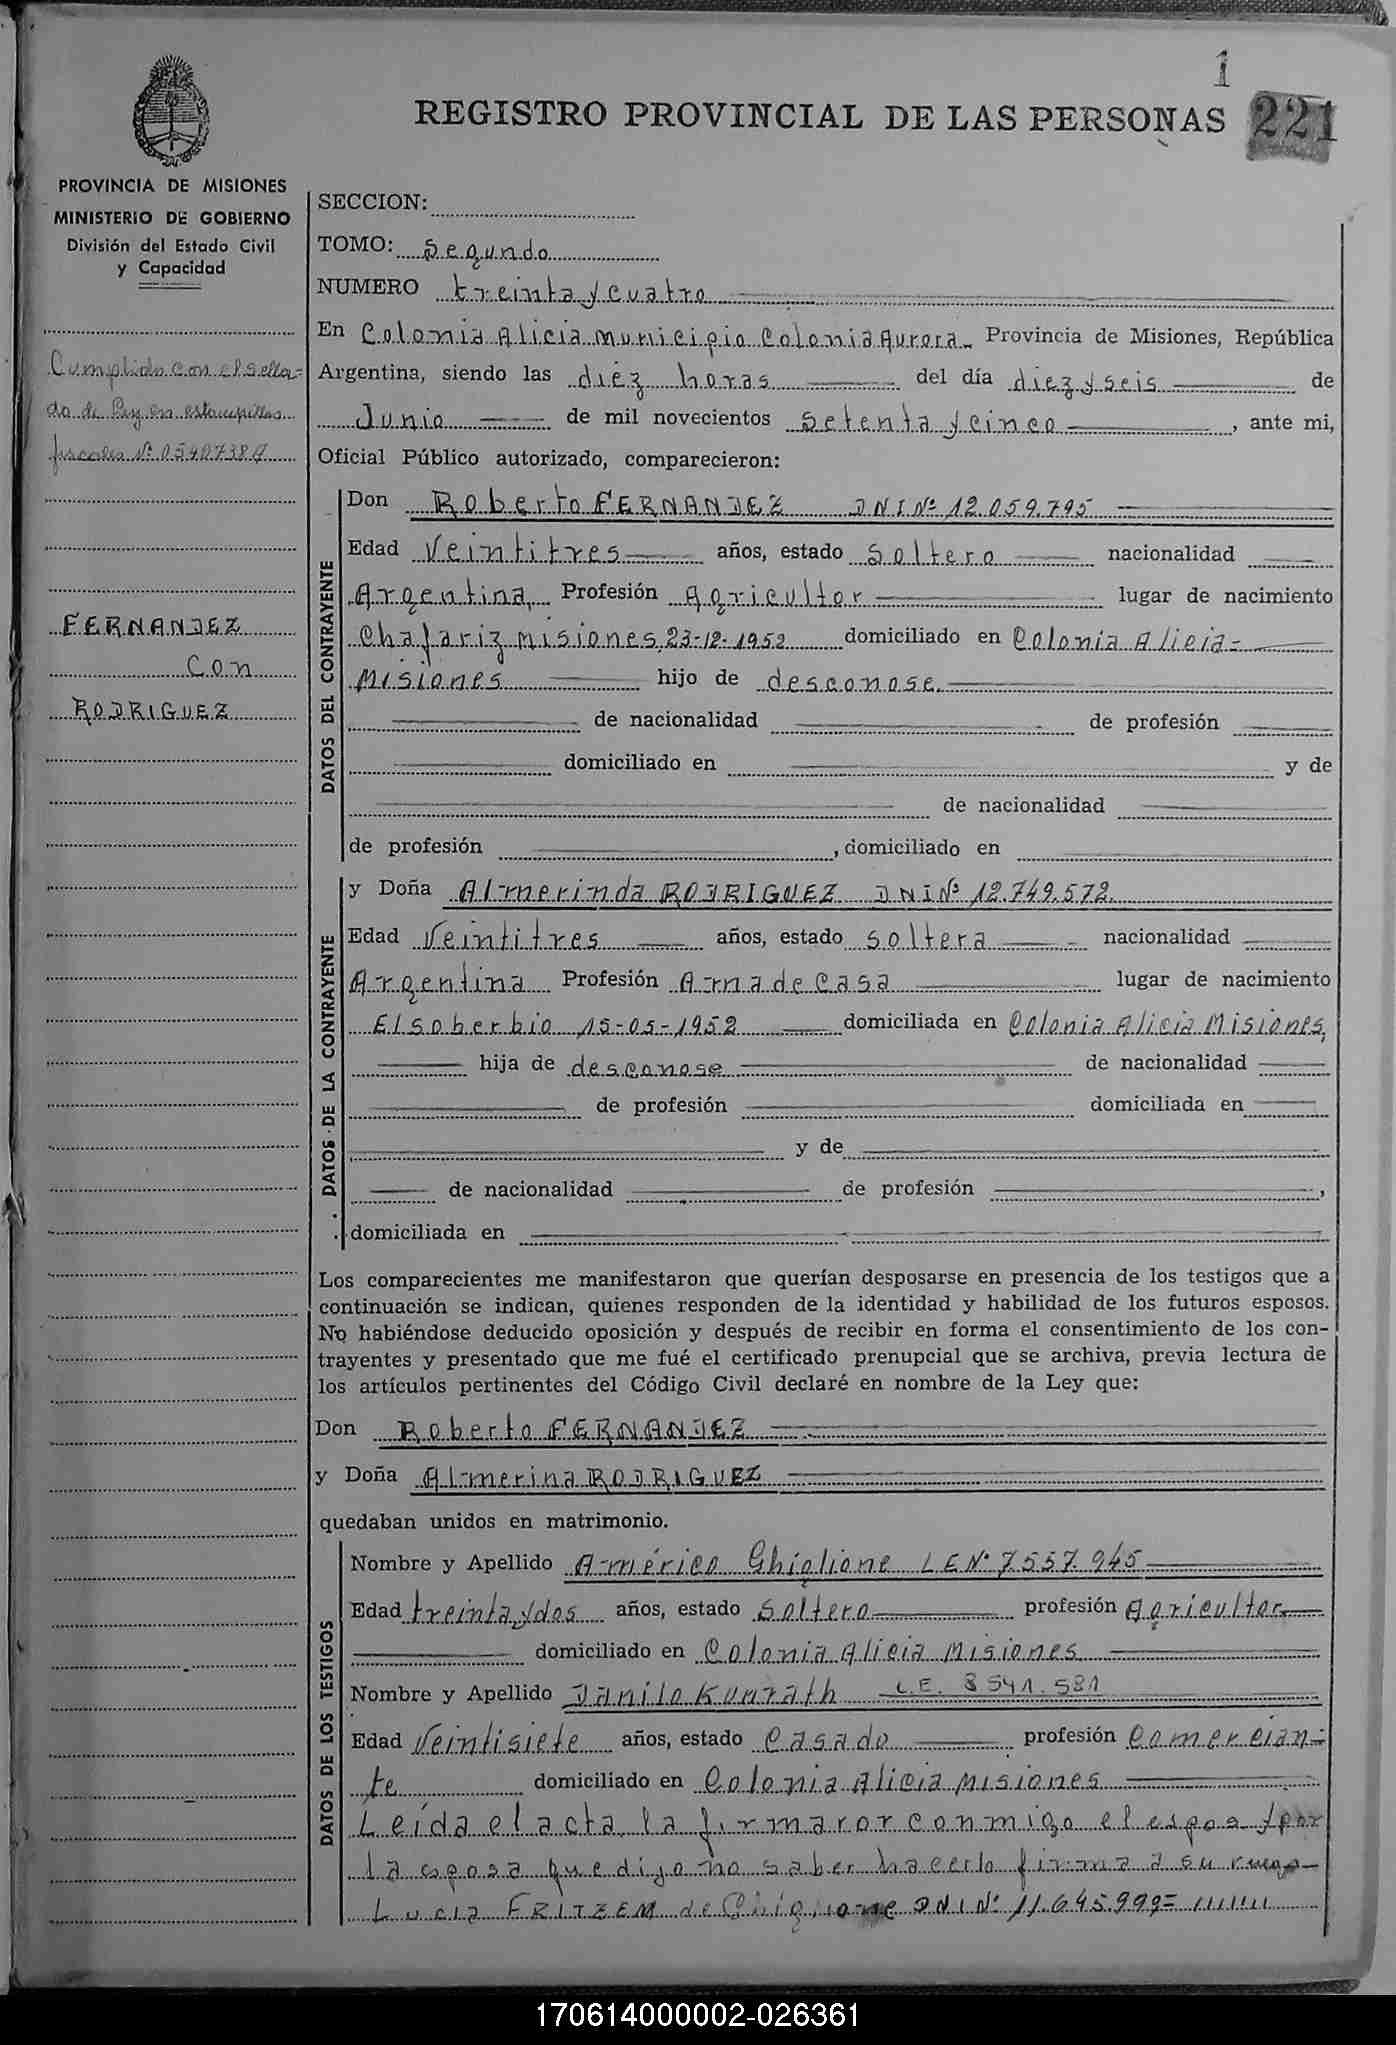 1
REGISTRO PROVINCIAL DE LAS PERSONAS 221
PROVINCIA DE MISIONES
MINISTERIO DE GOBIERNO
División del Estado Civil
y Capacidad
Cumplido con el sella-
do de Ley en estampillas
fiscales Nº 0540738
FERNANDEZ
con
RODRIGUEZ
SECCION:
TOMO: Segundo
NUMERO treinta y cuatro
En Colonia Alicia Municipio Colonia Aurora Provincia de Misiones, República
Argentina, siendo las diez horas del día diez y seis de
Junio de mil novecientos setenta y cinco, ante mi,
Oficial Público autorizado, comparecieron:
DATOS DEL CONTRAYENTE
Don Roberto FERNANDEZ DNI Nº 12.059.795
Edad Veintitres años, estado Soltero nacionalidad
Argentina, Profesión Agricultor lugar de nacimiento
Chafariz Misiones, 23-12-1952 domiciliado en Colonia Alicia-
Misiones hijo de desconose.
de nacionalidad de profesión
domiciliado en y de
de nacionalidad
de profesión , domiciliado en
DATOS DE LA CONTRAYENTE
y Doña Almerinda RODRIGUEZ DNI Nº 12.749.572.
Edad Veintitres años, estado soltera nacionalidad
Argentina Profesión Ama de casa lugar de nacimiento
El soberbio 15-05-1952 domiciliada en Colonia Alicia Misiones,
hija de desconose de nacionalidad
de profesión domiciliada en
y de
de nacionalidad de profesión ,
domiciliada en
Los comparecientes me manifestaron que querían desposarse en presencia de los testigos que a
continuación se indican, quienes responden de la identidad y habilidad de los futuros esposos.
No habiéndose deducido oposición y después de recibir en forma el consentimiento de los con-
trayentes y presentado que me fué el certificado prenupcial que se archiva, previa lectura de
los artículos pertinentes del Código Civil declaré en nombre de la Ley que:
Don Roberto FERNANDEZ
y Doña Almerina RODRIGUEZ
quedaban unidos en matrimonio.
DATOS DE LOS TESTIGOS
Nombre y Apellido Américo Ghiglione L E Nº 7.557.945
Edad treinta y dos años, estado Soltero profesión Agricultor
domiciliado en Colonia Alicia Misiones
Nombre y Apellido Danilo Kunrath L.E. 8 541.581
Edad Veintisiete años, estado Casado profesión Comercian-
te domiciliado en Colonia Alicia Misiones
Leída el acta, la firmaron conmigo el esposo y por
la esposa que dijo no saber hacerlo firma a su ruego
Lucia FRITZEM de Ghiglione DNI Nº 11.645.999=
170614000002-026361